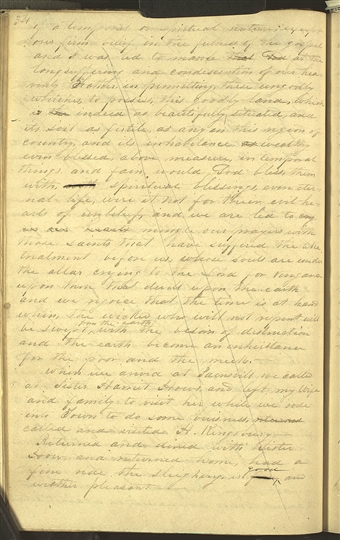 24
of a temporal or spiritual nature;
ious firm belief in the fulness of the gospel
and I was led to marvel at the
longsuffering and condescention of our hea-
venly Father, in permitting these ungodly
wretches to possess, this goodly land, which
is indeed as beautifully situated, and
its soil as fertile, as any in this region of
country, and its inhabitance as wealthy
even blessed above measure, in temporal
things and fain would God bless them
with spiritual blessings, even eter-
nal life, were it not for their evil he-
arts of unbelief, and we are led to
mingle our prayers with
those saints that have suffered the like
treatment before us, whose souls are under
the altar crying to the Lord for vengance
upon them that dwell upon the earth
and we rejoice that the time is at hand
when the wicked who will not repent will
be swept from the earth with the besom of destruction
and the earth become an inheritance
for the poor and the meek.—
When we arived at Painsvill we called
at Sister Harriet Howe's, and left my wife
and family to visit her while we rode
into Town to do some buisness, returned
called and visited H. Kingsbury—
Returned and dined with Sister
Howe, and returned home, had a
fine ride the sleighing is good and
weather pleasant—